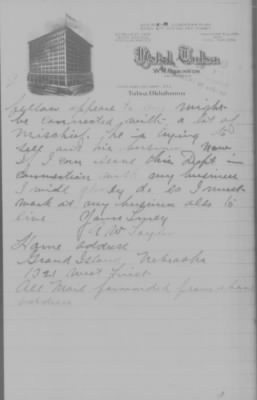 Hotel Tulsa
Tulsa, Oklahoma
fellow appears to me might
be connected with a lot of
mischief. he is trying to
sell out his business now
If I can serve this Dept in
connection with my business
I will gladly do so I must
work at my business also to
live Yours Truly
E W Taylor
Home address
Grand Island, Nebraska
1321 West First
All Mail forwarded from
address